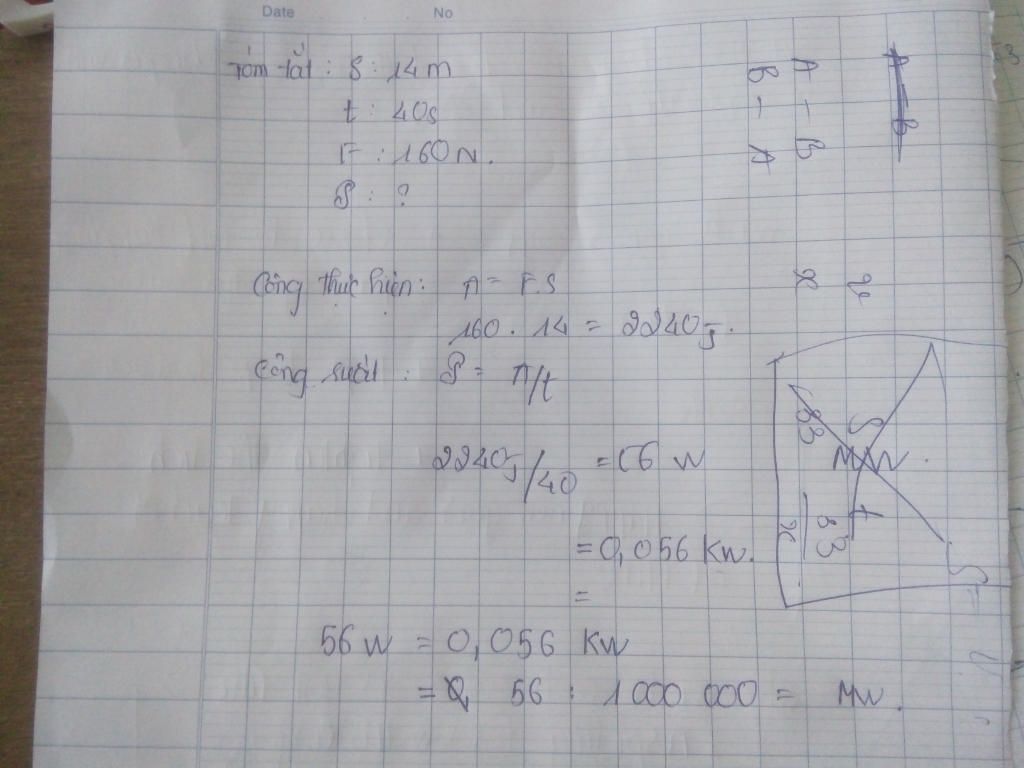 Date No
Tóm tắt : S : 14m
t : 40s
F : 160N.
P : ?
Công thực hiện : A = F.S
160 . 14 = 2240J.
Công suất : P = A/t
2240J/40 = 56 W
= 0,056 KW.
=
56 W = 0,056 KW
= 56 : 1000 000 = MW.
A - B
B - A